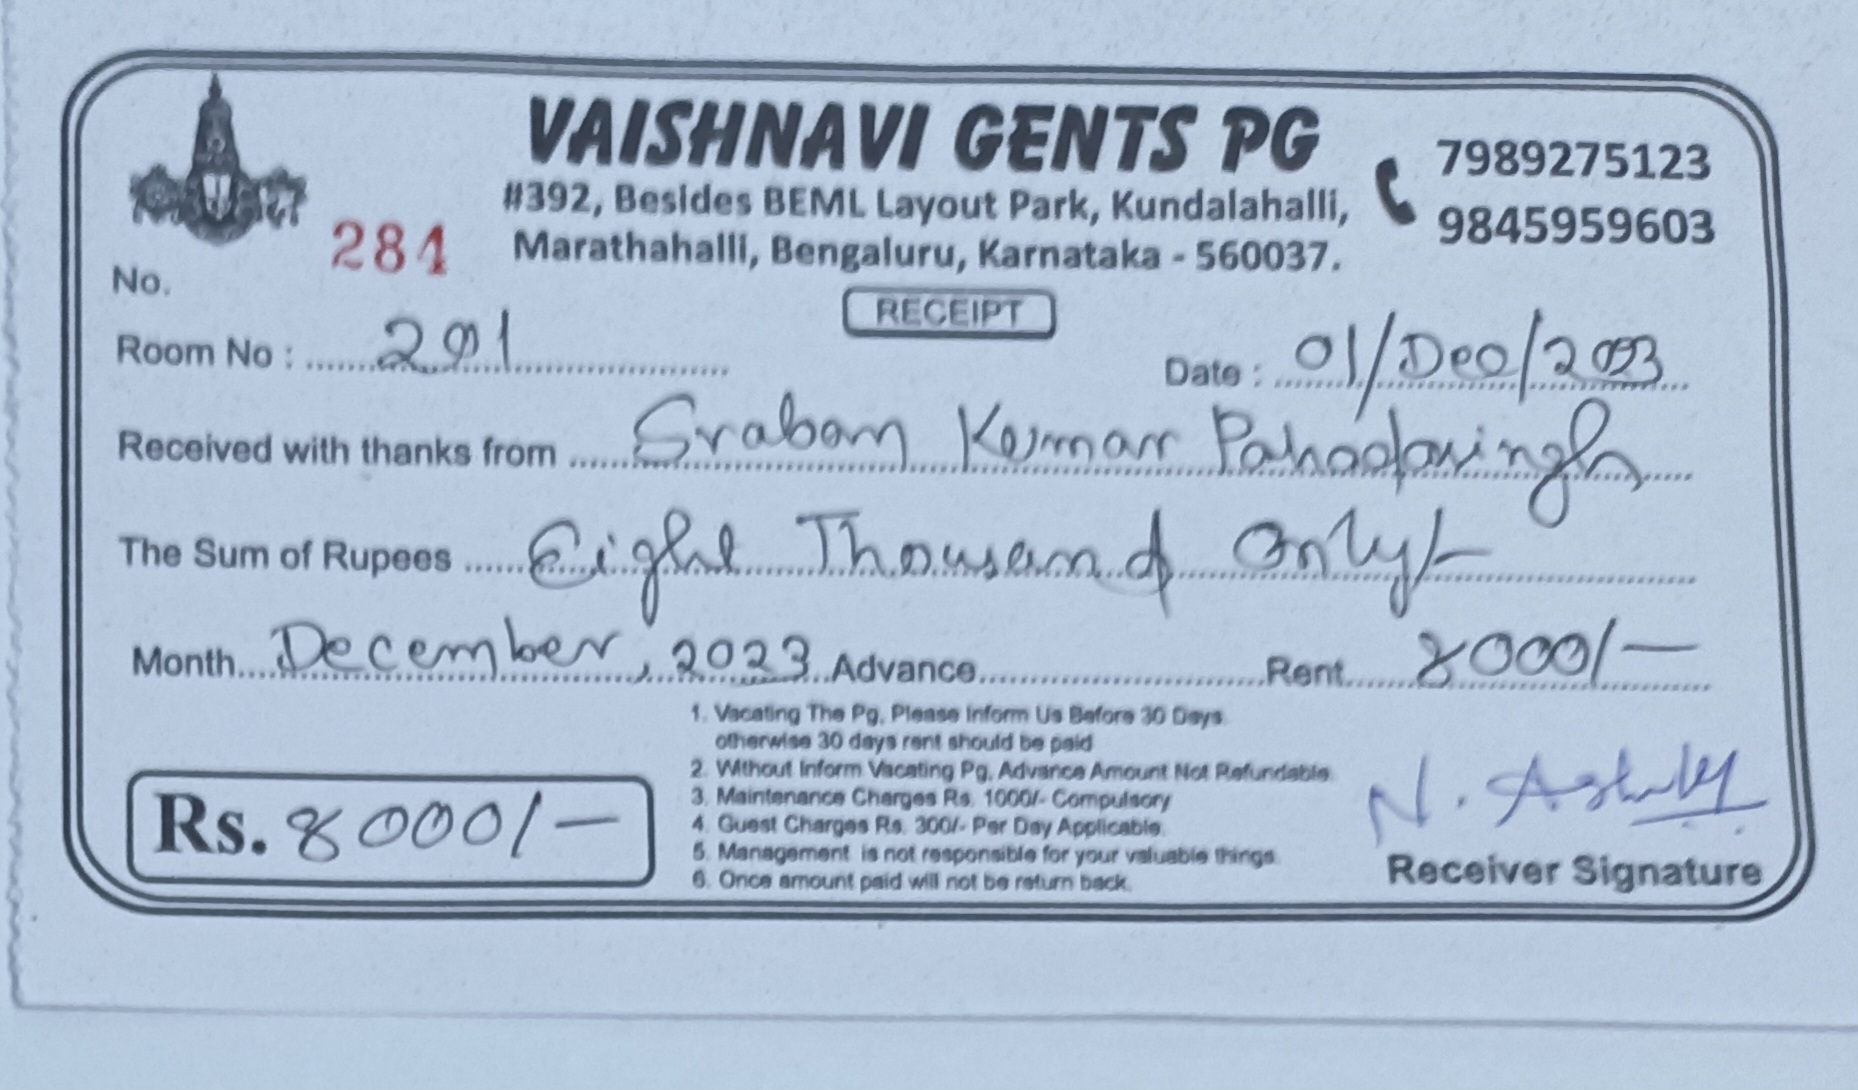 VAISHNAVI GENTS PG
#392, Besides BEML Layout Park, Kundalahalli,
Marathahalli, Bengaluru, Karnataka - 560037.
7989275123
9845959603
No. 284
RECEIPT
Room No : 201 Date : 01/Dec/2023
Received with thanks from Sraban Kumar Pahadasingh
The Sum of Rupees Eight Thousand Only/-
Month December, 2023 Advance Rent 8000/-
1. Vacating The Pg, Please Inform Us Before 30 Days.
otherwise 30 days rent should be paid
2. Without Inform Vacating Pg, Advance Amount Not Refundable.
3. Maintenance Charges Rs. 1000/- Compulsory
4. Guest Charges Rs. 300/- Per Day Applicable.
5. Management is not responsible for your valuable things.
6. Once amount paid will not be return back.
Rs. 8000/-
N.
Receiver Signature